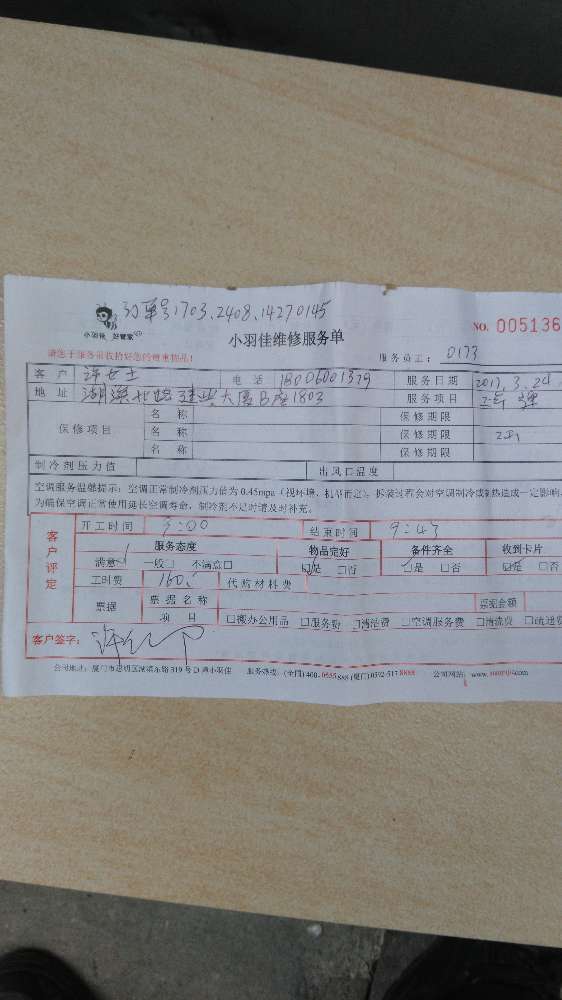 订单号:1703.2408.14270145
小羽佳 好管家
小羽佳维修服务单
NO. 005136
请您于服务前收拾好您的贵重物品!
服务员工: 0173
客户 许女士 电话 18006001379 服务日期 2017.3.24
地址 湖滨北路建业大厦B座1803 服务项目
保修项目 名称 保修期限
名称 保修期限
名称 保修期限
制冷剂压力值 出风口温度
空调服务温馨提示:空调正常制冷剂压力值为0.45mpa(视环境、机型而定),拆装过程会对空调制冷或制热造成一定影响,
为确保空调正常使用延长空调寿命,制冷剂不足时请及时补充。
客户评定
开工时间 9:00 结束时间 9:43
服务态度 物品完好 备件齐全 收到卡片
满意 一般□ 不满意□ ☑是 □否 ☑是 □否 ☑是 □否
工时费 160 代购材料费
票据 票据名称 票据金额
项目 □搬办公用品 □服务费 □清洁费 □空调服务费 □清洗费 □疏通费
客户签字:
公司地址:厦门市思明区湖滨东路319号D座小羽佳 服务热线:(全国)400-0555888 (厦门)0592-5178888 公司网站: